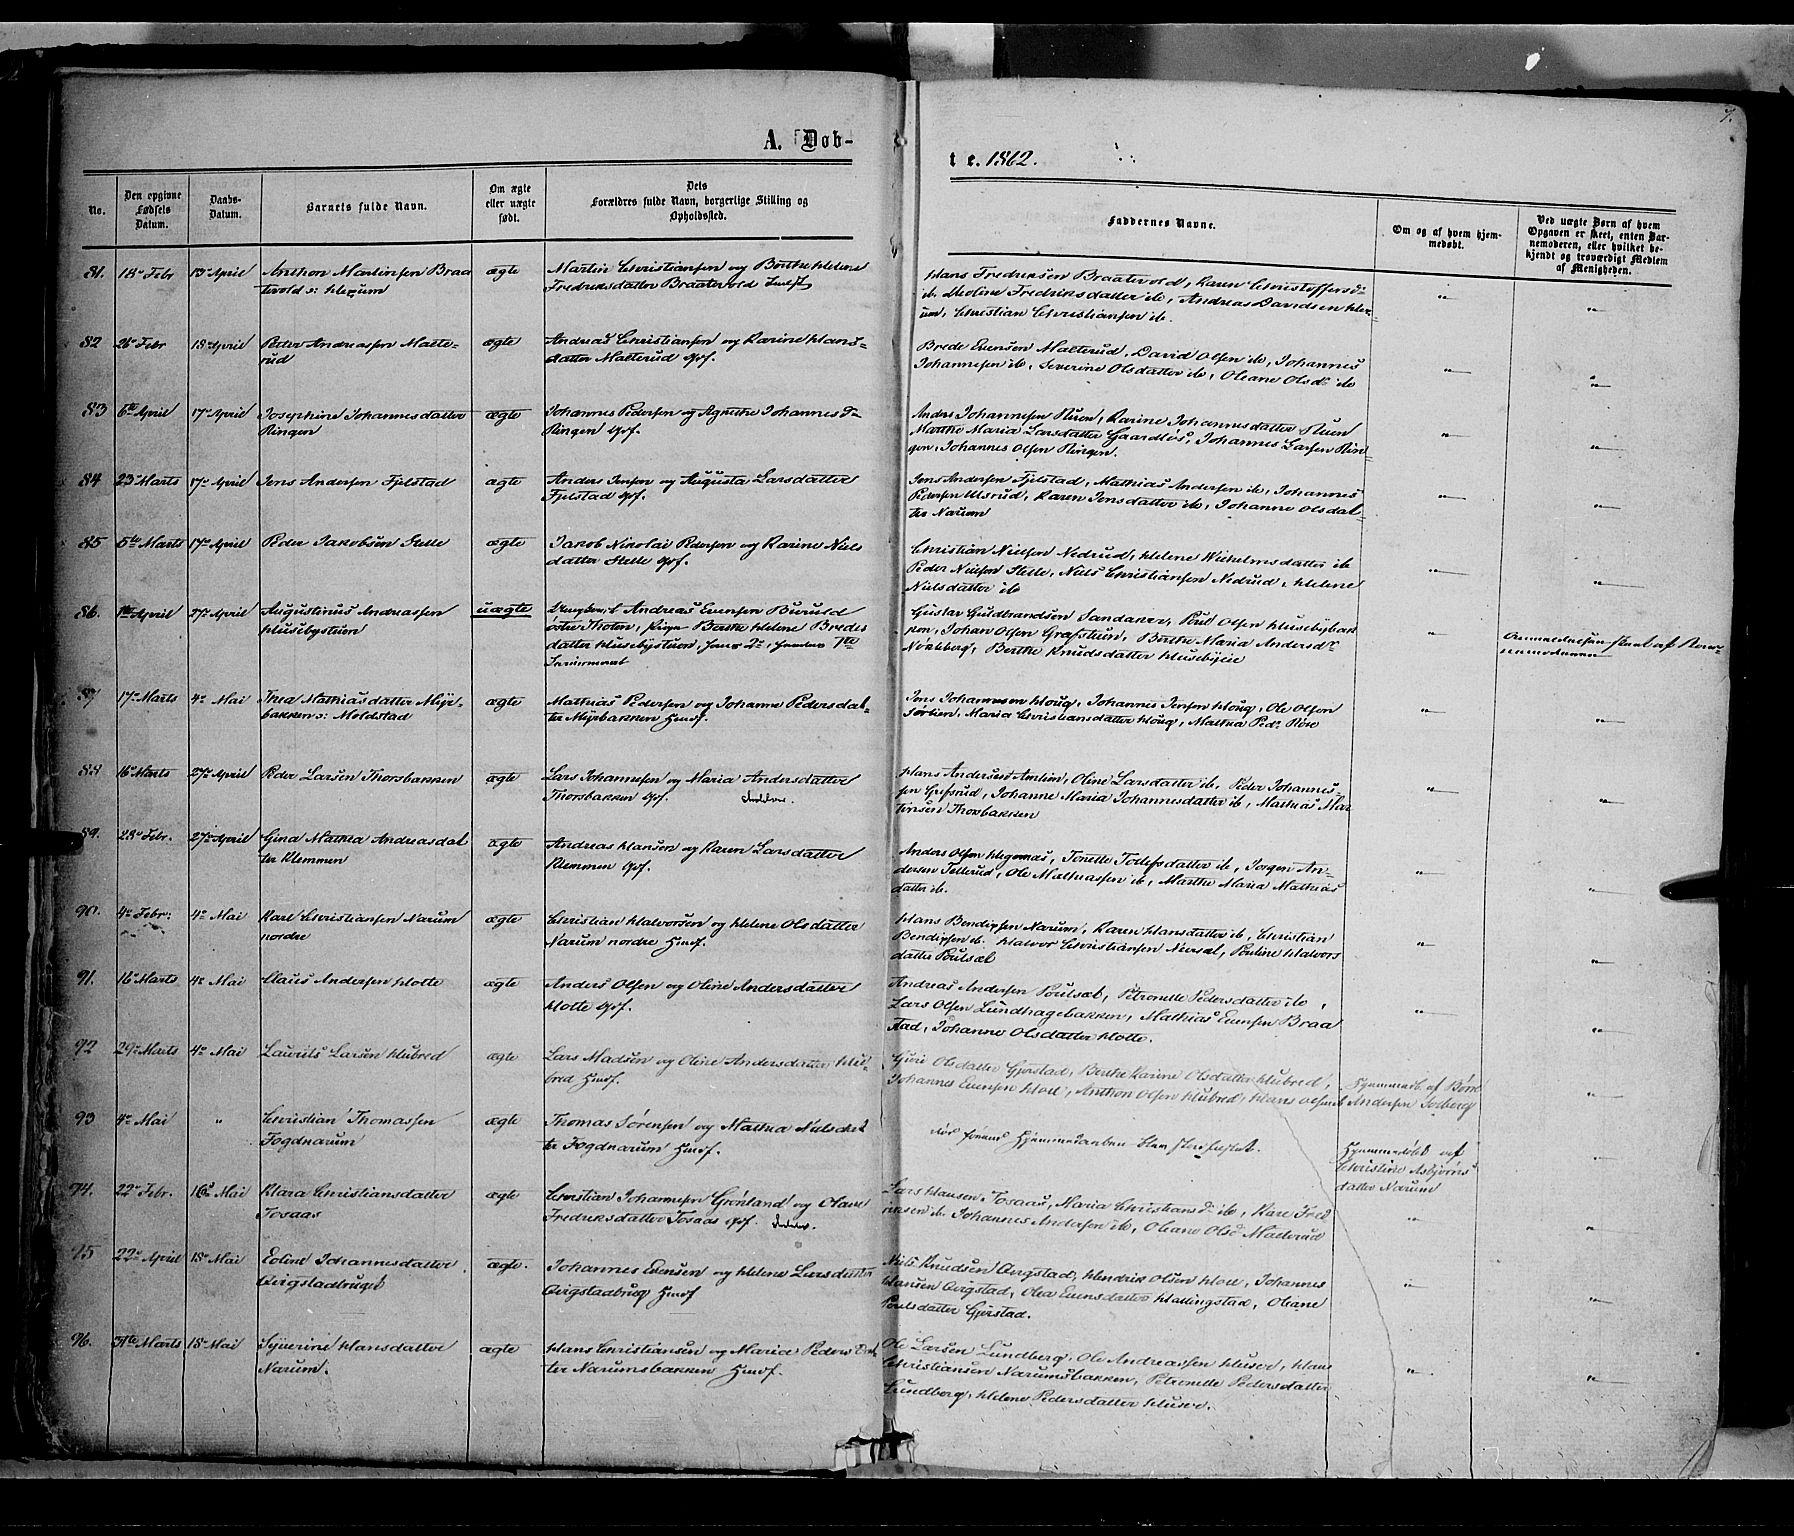 7.
A. Döb-
t e. 1862.
No.
Den opgivne Fødsels Datum.
Daabs-Datum.
Barnets fulde Navn.
Om ægte eller uægte født.
Dets Forældres fulde Navn, borgerlige Stilling og Opholdssted.
Faddernes Navne.
Om og af hvem hjemmedøbt.
Ved uægte Børn af hvem Opgaven er skeet, enten Barnemoderen, eller hvilket bekjendt og troværdigt Medlem af Menigheden.
81. 18de Febr April Anthon Martinsen Braa ægte Martin Christiansen og Berthe Helene
tevold
Fredriksdatter Braatevold
Hans Fredriksen Braatevold, Karen Christoffersd
ib. Fredriksdatter ib, Andreas Davidsen
Christian Christiansen ib.
82 Febr 18 April Peder Andreasen Malte- ægte Andreas Christiansen og Karine Hans-
rud
datter Malterud Gpf.
Brede Evensen Malterud, David Olsen ib, Johannes
Johannesen ib, Severine Olsdatter ib, Oleane Olsd ib
83 6te April 17 April Josephine Johannesdatter ægte Johannes Pedersen og Agnethe Johannesd
Ringen
Ringen Gpf.
Anders Johannesen Ruen, Karine Johannesdatter Ruen
Marthe Maria Larsdatter Gaardløs, Johannes Larsen Rin-
gen, Johannes Olsen Ringen.
84 23 Marts 17 April Jens Andersen Fjelstad ægte Anders Jensen og Augusta Larsdatter
Fjelstad Gpf.
Jens Andersen Fjelstad, Mathias Andersen ib, Johannes
Pedersen Ulsrud, Karen Jensdatter ib, Johanne Olsdat-
ter Narum
85 5te Marts 17 April Peder Jakobsen Stelle ægte Jakob Nikolai Pedersen og Karine Niels
datter Stelle Gpf.
Christian Nielsen Nedrud, Helene Wilhelmsdatter ib
Peder Nielsen Stelle, Niels Christiansen Nedrud, Helene
Nielsdatter ib
86. 1ste April 27 April Augustinus Andreassen uægte Andreas Evensen
Husebystuen
østre Thoten, Pige Berthe Helene Bredes
datter Husebystuen,
Gustav Guldbrandsen Sandaker, Poul Olsen Husebybak
ken, Johan Olsen Græfstuen, Berthe Maria Andersdr
Nøkleberg, Berthe Knudsdatter Husebyeie
87 17 Marts 4 Mai Thea Mathiasdatter Myr- ægte Mathias Pedersen og Johanne Pedersdat-
bakken : Moldstad
ter Myrbakken Husf.
Jens Johannesen Houg, Johannes Jensen Houg, Ole Olsen
Sørlien, Maria Christiansdatter Houg, Mathea Pedr
88 16 Marts 27 April Peder Larsen Thorsbakken ægte Lars Johannesen og Maria Andersdatter
Thorsbakken Gpf.
Hans Andersen Amlien, Oline Larsdatter ib, Peder Johannes-
sen Grefsrud, Johanne Maria Johannesdatter ib, Mathias Mar
tinsen Thorsbakken
89. 28 Febr. 27 April Gina Mathea Andreasdat ægte Andreas Hansen og Karen Larsdatter
ter Klemmen
Klemmen Gpf.
Anders Olsen Hegernæs, Tonette Tollefsdatter ib, Jørgen An-
dersen Tellerud, Ole Mathiassen ib, Marthe Maria Mathias
datter ib.
90. 4 Febr: 4 Mai Karl Christiansen Narum ægte Christian Halvorsen og Helene Olsdatter
nordre
Narum nordre Husf.
Hans Bendixsen Narum, Karen Hansdatter ib, Christian
Bendixsen ib. Halvor Christiansen Nersæt, Pauline Halvors
datter Poulsæt
91. 16 Marts 4 Mai Claus Andersen Hotte ægte Anders Olsen og Oline Andersdatter
Hotte Gpf.
Andreas Andersen Poulsæt, Petronelle Pedersdatter ib,
Lars Olsen Lundhagebakken, Mathias Evensen Braa
stad, Johanne Olsdatter Hotte.
92 29 Marts 4 Mai Laurits Larsen Hubred ægte Lars Madsen og Oline Andersdatter Hub-
bred Husf.
Guri Olsdatter Gjerstad, Berthe Karine Olsdatter Hubred,
Johannes Evensen Hole, Anthon Olsen Hubred, Hans Olsen ib
Hjemmedb. af Børre
Andersen
93 4 Mai " Christian Thomassen ægte Thomas Sørensen og Mathea Nielsdat
Fogdnarum
ter Fogdnarum Husf.
Hjemmedøbt af
Christine Asbjørns
datter Narum
94. 22 Febr. 16 Mai Klara Christiansdatter ægte Christian Johannesen Grønland og Oliane
Tosaas
Fredriksdatter Tosaas Gpf.
Lars Hansen Tosaas, Maria Christiansd ib, Kari Fred
riksen ib. Johannes Andersen ib, Oleane Olsd Malterud
95 22 April 18 Mai Edine Johannesdatter ægte. Johannes Evensen og Helene Larsdatter
Qvigstadbruget
Qvigstadbrug Husf
Niels Knudsen Qvigstad, Hendrik Olsen Hole, Johannes
Hansen Qvigstad, Olea Evensdatter Hallingstad, Oliane
Poulsdatter Gjerstad.
96. 31te Marts 18 Mai Syverine Hansdatter ægte Hans Christiansen og Maria Peders Dat-
Narum.
ter Narumsbakken Husf.
Ole Larsen Lundberg, Ole Andreassen Huser, Hans
Christiansen Narumsbakken, Petronelle Pedersdatter
Lundberg, Helene Pedersdatter Huser.